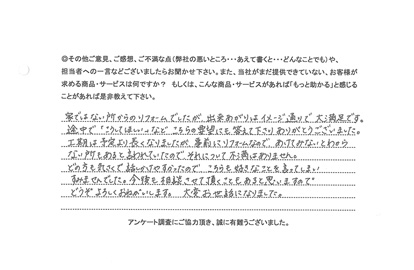 ◎その他ご意見、ご感想、ご不満な点（弊社の悪いところ・・・あえて書くと・・・どんなことでも）や、
担当者への一言などございましたらお聞かせ下さい。また、当社がまだ提供できていない、お客様が
求める商品・サービスは何ですか？ もしくは、こんな商品・サービスがあれば「もっと助かる」と感じる
ことがあれば是非教えて下さい。
家ではない所からのリフォームでしたが、出来あがりはイメージ通りで大満足です。
途中で「こうしてほしい」など こちらの要望にも答えて下さりありがとうございました。
工期は予定より長くなりましたが、事前にリフォームなので あけてみないとわから
ない所もあると言われていたので それについて不満はありません。
どの方も気さくで話しかけやすかったので こちらも好きなことを言ってしまい
すみませんでした。今後も相談させて頂くこともあると思いますので
どうぞよろしくおねがいします。大変お世話になりました。
アンケート調査にご協力頂き、誠に有難うございました。